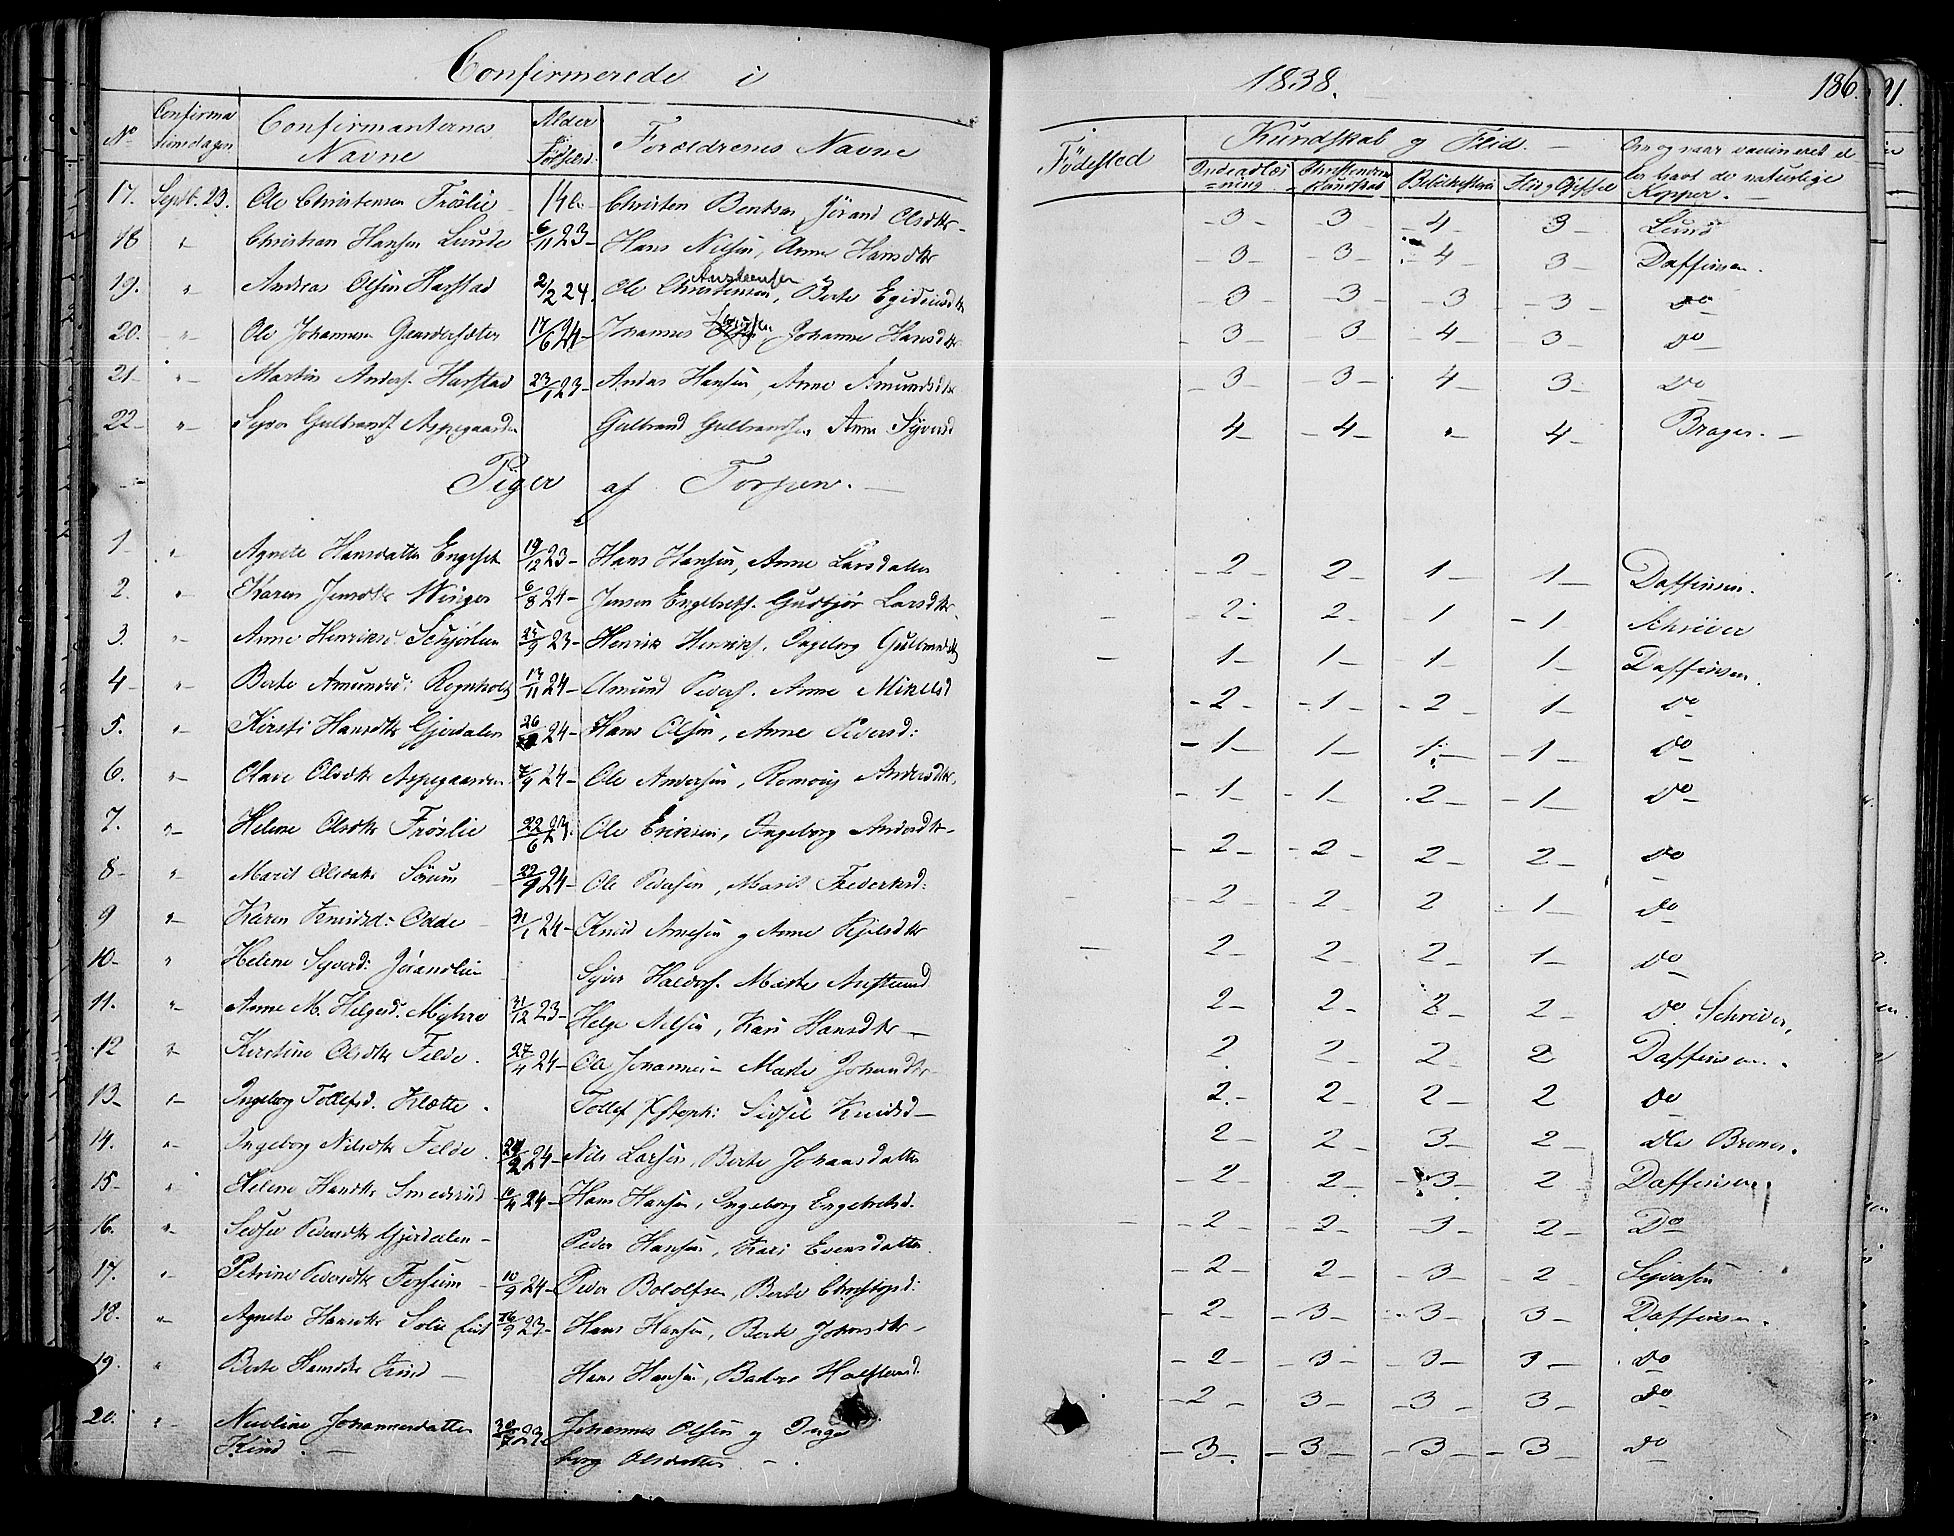 Confirmerede i 1838. 186. 91.
No Confirmationsdagen Confirmanternes Navne Alder Forældrenes Navne Födested Kundskab og Flid. Om og naar vaccineret el
Indenadlæsning Christendomskundskab Flid og
ler havt de naturlige Kopper.
17. Septb. 23. Ole Christensen Fröslie Christen Bentsen Jörand Olsdtr - 3 - 3 - 4 - 3 - Lund
18 " Christian Hansen Lunde 6/11 23 - Hans Nilsen, Anne Hansdtr - 3 - 3 - 4 - 3 - Daffinsen.
19. " Andreas Olsen Harstad 2/2 24. Ole Christensen, Berte Egidiusdtr - 3 - 3 - 3 - 3 - do
20. " Ole Johannesen Gaardersæter 17/6 24 - Johannes Johanne Hansdtr - 3 - 3 - 4 - 3 - do
21 - " Martin Anders. Harstad 23/1 23 - Anders Hansen, Anne Amundsdtr - 3 - 3 - 4 - 3 - do
22 - " Syver Gulbrands. Aspegaarden Gulbrand Gulbrandsen, Anne Syversd 4 - 4 - " - 4 - Brager. -
Piger af Torpen. -
1 - " Agnete Hansdatter Engeset 19/12 23 - Hans Hansen, Anne Larsdatter - 2 - 2 - 1 - 1 - Daffinsen.
2. " Karen Jensdtr Winger 6/8 24 - Jensen Engebrets. Gudbjør Larsdtr - 2 - 2 - 1 - 1 - Schriver
3. " Anne Henriksd: 25/9 23 - Henrik Henriks. Ingeborg Gulbrandsd 1 - 1 - 1 - 1 - Daffinsen.
4 - " Berte Amundsd: Rognholt 17/11 24 - Amund Peders. Anne Mikelsd - 2 - 1 - 2 - 1 - do
5. " Kirsti Hansdtr Gjerdalen 26/ 24 - Hans Olsen, Anne Siversd: - 1 - 1 - 1 - 1 - do
6. " Olave Olsdtr Aspegaarden 7/9 24 - Ole Andersen, Romoug Andersdtr - 1 - 1 - 2 - 1 - do
7. " Helene Olsdtr Fröslie 22/6 23. Ole Eriksen, Ingeborg Andersdtr - - 2 - 2 - 2 - 2 - do
8 - " Marit Olsdatr Sörum 22/9 24 - Ole Pedersen, Marit - 2 - 2 - 2 - 1 - do
9 " Karen Knudsd: Odde 31/1 24 - Knud Arnesen og Anne Kjelsdtr 2 - 2 - 2 - 1 - do
10 - " Helene Syversd: Jörandlien Syver Haldors. Marte 2 - 2 - 2 - 2 - do Schriver,
11. " Anne M. Helgesd. Myhre 31/12 23 - Helge Nilsen, Kari Hansdtr - 2 - 2 - 2 - 2 Daffinsen.
12 " Kerstine Olsdtr Felde. 27/4 24 - Ole Johannes. - Marte Johansdtr 2. - 2 - 2 - 2 do
13 - " Ingeborg Tollefsd. Klætte. Tollef Sidsel Knudsd - 2 - 2 - 3 - 2 - Ole Broner.
14. " Ingeborg Nilsdtr Felde. 24 - Nils Larsen, Berte Johansdatter - 2 - 2 - 3 - 2 Daffinsen.
15 - " Helene Hansdtr Smedsrud 10/4 24 - Hans Hansen, Ingeborg Engebretsd. - 2 - 2 - 3 - 2 - Do
16. " Sidsel Pedersdtr Gjerdalen - Peder Hansen, Kari Evensdatter - 2 - 2 - 3 - 2 - Syversen
17. " Petrine Pedersdtr Forseim 10/9 24 - Peder Bololfsen, Berte Christophsd: - 2 - 3 - 3 - 3 - Daffinsen.
18. " Agnete Hansdtr Solie 16/9 23 - Hans Hansen, Berte Johansdtr, - 2 - 3 - 3 - 3 - do
19. " Berte Hansdtr Kind - Hans Hansen, - 2 - 3 - 3 - 3 - do
20. " - Johannesdatter Johannes Olsen og Inge - 3 - 3 - 3 - 3 - do
Kind. - borg Olsdatter - .